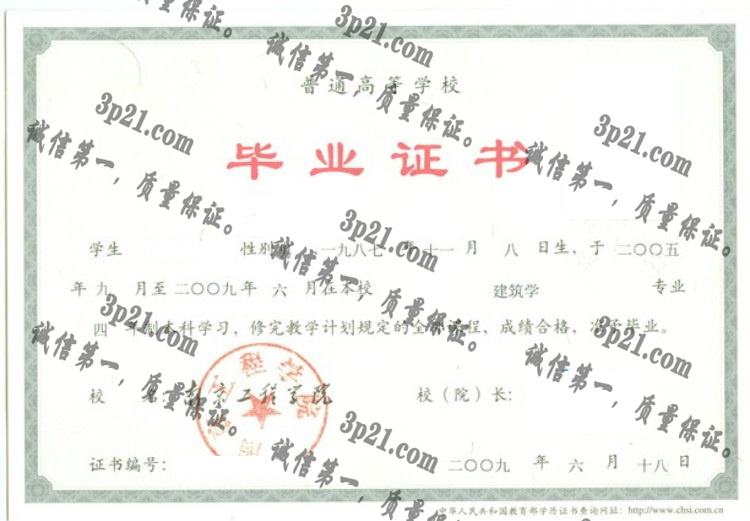 普通高等学校
毕业证书
学生 性别 一九八七 年 十一 月 八 日生，于 二〇〇五
年 九 月至 二〇〇九 年 六 月在本校 建筑学 专业
四 年制本科学习，修完教学计划规定的全部课程，成绩合格，准予毕业。
校 名：南京工程学院 校（院）长：
证书编号： 二〇〇九 年 六 月 十八 日
中华人民共和国教育部学历证书查询网址：http://www.chsi.com.cn
3p21.com
诚信第一，质量保证。
3p21.com
诚信第一，质量保证。
3p21.com
诚信第一，质量保证。
3p21.com
诚信第一，质量保证。
3p21.com
诚信第一，质量保证。
3p21.com
诚信第一，质量保证。
3p21.com
诚信第一，质量保证。